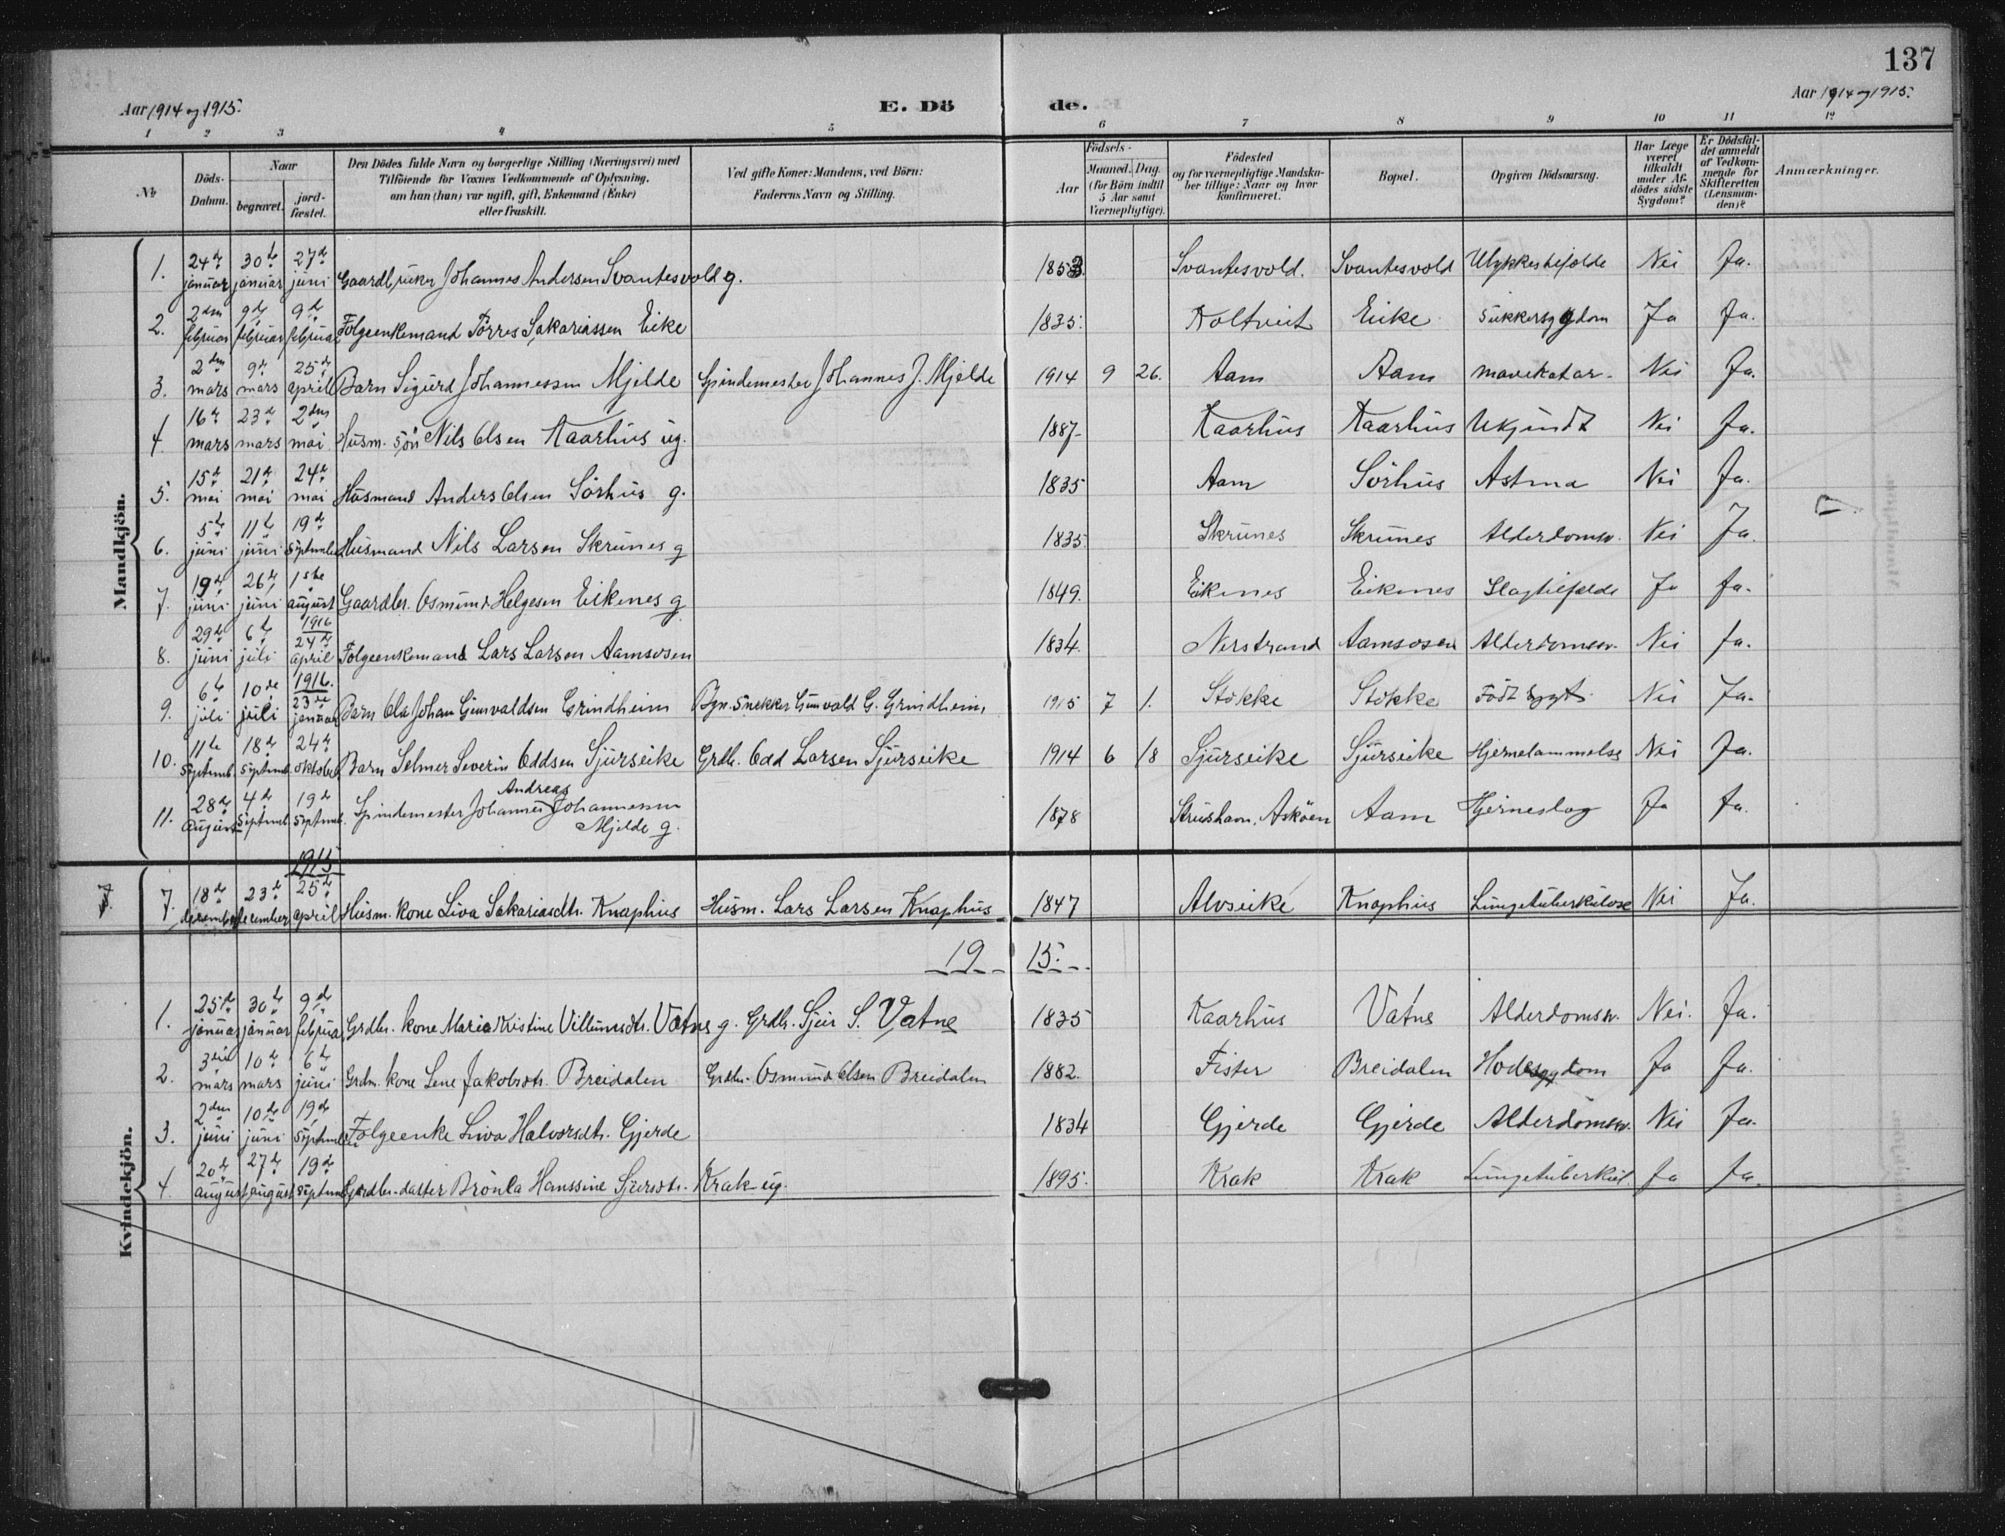 137
Aar 1914 og 1915.
E. Dö
de.
Aar 1914 og 1915.
1 2 3 4 5 6 7 8 9 10 11 12
No
Döds-Datum.
Naar
begravet.
jord-fæstet.
Den Dödes fulde Navn og borgerlige Stilling (Næringsvei) med
Tilföiende for Voxnes Vedkommende af Oplysning,
om han (hun) var ugift, gift, Enkemand (Enke)
eller fraskilt.
Ved gifte Koner: Mandens, ved Börn:
Faderens Navn og Stilling.
Födsels-
Aar
Maaned. Dag.
(for Börn indtil
5 Aar samt
Værnepligtige).
Födested
og for værnepligtige Mandska-
ber tillige: Naar og hvor
konfirmeret.
Bopæl.
Opgiven Dödsaarsag.
Har Læge
været
tilkaldt
under Af-
dödes sidste
Sygdom?
Er Dödsfal-
det anmeldt
af Vedkom-
mende for
Skifteretten
(Lensman-
den)?
Anmærkninger.
Mandkjön.
1. 24de januar 30te januar 27de juni Gaardbruker Johannes Andersen Svantesvold g. 1853. Svantesvold. Svantesvold Ulykkestifælde Nei Ja.
2. 2den februar 9de februar 9de februar Folgeenkemand Törres Sakariassen Eike 1835. Koltveit Eike Sukkersygdom Ja Ja.
3. 2den mars 9de mars 25de april Barn Sigurd Johannessen Mjelde Spindemester Johannes J. Mjelde 1914 9 26. Aam Aam Mavekatar. Nei Ja.
4. 16de mars 23de mars 2den mai Husm. sön Nils Olsen Kaarhus ug. 1887. Kaarhus Kaarhus Ukjendt Nei Ja.
5. 15de mai 21de mai 24de mai Husmand Anders Olsen Sörhus g. 1835 Aam Sörhus Astma Nei Ja.
6. 5te juni 11te juni 19de september Husmand Nils Larsen Skrunes g 1835. Skrunes Skrunes Alderdomssv. Nei Ja.
7. 19de juni 26de juni 1ste august Gaardbr. Osmund Helgesen Eikenes g. 1849. Eikenes Eikenes Slagtilfælde Ja Ja.
8. 29de juni 6te juli 1916 24de april Folgeenkemand Lars Larsen Aamsosen 1834. Nerstrand Aamsosen Alderdomssv. Nei Ja.
9. 6te juli 10de juli 1916. 23de januar Barn Ola Johan Gunvaldsen Grindheim Bgn. snekker Gunvald G. Grindheim 1915 7 1. Stokke Stokke Födt sygt Nei Ja.
10. 11te septemb. 18de septemb. 24de oktober Barn Selmer Severin Oddsen Sjurseike Grdbr. Odd Larsen Sjurseike 1914 6 18 Sjurseike Sjurseike Hjernelammelse Nei Ja.
11. 28de august 4de septemb. 19de septemb. Spindemester Johannes Andreas Johannessen
Mjelde g. 1878 Strushavn, Asköen Aam Hjerneslag Ja Ja.
7. 7. 18de december 23de december 1915 25de april Husm. kone Liva Sakariasdtr. Knaphus Husm. Lars Larsen Knaphus 1847 Alvseike Knaphus Lungetuberkulose Nei Ja.
19 15.
Kvindekjön.
1. 25de januar 30te januar 9de februar Grdbr. kone Maria Kristine Villumsdtr. Vatne g. Grdbr. Sjur S. Vatne 1835 Kaarhus Vatne Alderdomssv. Nei. Ja.
2. 3die mars 10de mars 6te juni Grdm. kone Lene Jakobsdtr. Breidalen Grdbr. Osmund Olsen Breidalen 1882. Fister Breidalen Hodesygdom Ja Ja.
3. 2den juni 10de juni 19de septemb. Folgeenke Liva Halvorsdtr. Gjerde 1834 Gjerde Gjerde Alderdomssv. Nei Ja.
4. 20de august 27de august 19de septemb. Gardbr. datter Brönla Hanssine Sjursdtr. Krak ug. 1895. Krak Krak Lungetuberkul. Ja Ja.